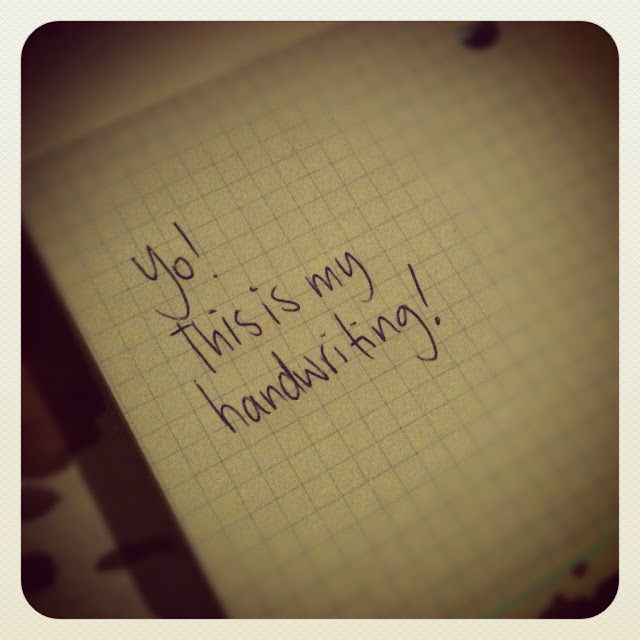 Yo!
This is my
handwriting!